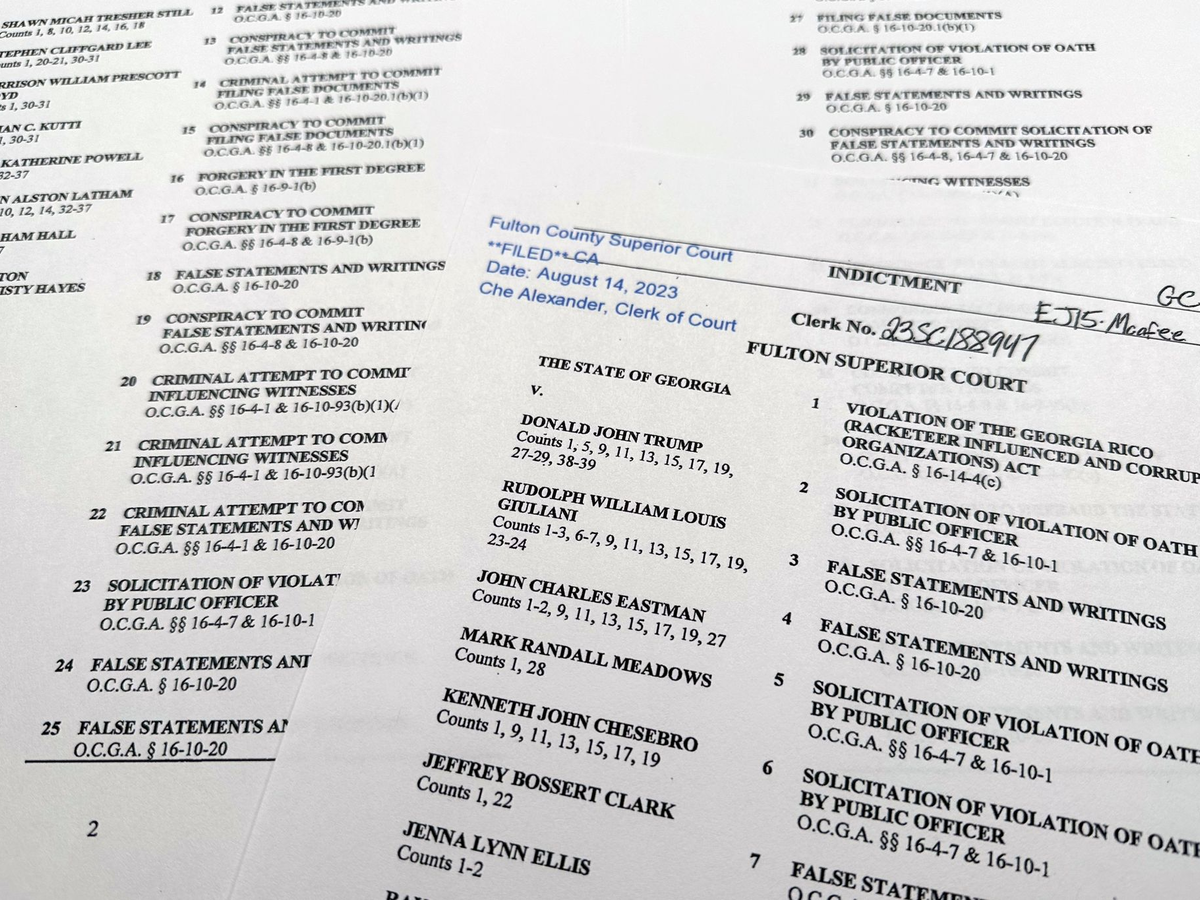 SHAWN MICAH TRESHER STILL
Counts 1, 8, 10, 12, 14, 16, 18
STEPHEN CLIFFGARD LEE
20-21, 30-31
HARRISON WILLIAM PRESCOTT
1, 30-31
C. KUTTI
1, 30-31
KATHERINE POWELL
32-37
ALSTON LATHAM
10, 12, 14, 32-37
HALL
HAYES
12 FALSE STATEMENTS AND WRITINGS
O.C.G.A. § 16-10-20
13 CONSPIRACY TO COMMIT
FALSE STATEMENTS AND WRITINGS
O.C.G.A. §§ 16-4-8 & 16-10-20
14 CRIMINAL ATTEMPT TO COMMIT
FILING FALSE DOCUMENTS
O.C.G.A. §§ 16-4-1 & 16-10-20.1(b)(1)
15 CONSPIRACY TO COMMIT
FILING FALSE DOCUMENTS
O.C.G.A. §§ 16-4-8 & 16-10-20.1(b)(1)
16 FORGERY IN THE FIRST DEGREE
O.C.G.A. § 16-9-1(b)
17 CONSPIRACY TO COMMIT
FORGERY IN THE FIRST DEGREE
O.C.G.A. §§ 16-4-8 & 16-9-1(b)
18 FALSE STATEMENTS AND WRITINGS
O.C.G.A. § 16-10-20
19 CONSPIRACY TO COMMIT
FALSE STATEMENTS AND WRITIN
O.C.G.A. §§ 16-4-8 & 16-10-20
20 CRIMINAL ATTEMPT TO COMMI
INFLUENCING WITNESSES
O.C.G.A. §§ 16-4-1 & 16-10-93(b)(1)(
21 CRIMINAL ATTEMPT TO COMM
INFLUENCING WITNESSES
O.C.G.A. §§ 16-4-1 & 16-10-93(b)(1
22 CRIMINAL ATTEMPT TO COM
FALSE STATEMENTS AND W
O.C.G.A. §§ 16-4-1 & 16-10-20
23 SOLICITATION OF VIOLAT
BY PUBLIC OFFICER
O.C.G.A. §§ 16-4-7 & 16-10-1
24 FALSE STATEMENTS AN
O.C.G.A. § 16-10-20
25 FALSE STATEMENTS AN
O.C.G.A. § 16-10-20
2
27 FILING FALSE DOCUMENTS
O.C.G.A. § 16-10-20.1(b)(1)
28 SOLICITATION OF VIOLATION OF OATH
BY PUBLIC OFFICER
O.C.G.A. §§ 16-4-7 & 16-10-1
29 FALSE STATEMENTS AND WRITINGS
O.C.G.A. § 16-10-20
30 CONSPIRACY TO COMMIT SOLICITATION OF
FALSE STATEMENTS AND WRITINGS
O.C.G.A. §§ 16-4-8, 16-4-7 & 16-10-20
WITNESSES
Fulton County Superior Court
**FILED** CA
Date: August 14, 2023
Che Alexander, Clerk of Court
INDICTMENT
GC
EJ15. Mcafee
Clerk No. 23SC188947
FULTON SUPERIOR COURT
THE STATE OF GEORGIA
V.
DONALD JOHN TRUMP
Counts 1, 5, 9, 11, 13, 15, 17, 19,
27-29, 38-39
RUDOLPH WILLIAM LOUIS
GIULIANI
Counts 1-3, 6-7, 9, 11, 13, 15, 17, 19,
23-24
JOHN CHARLES EASTMAN
Counts 1-2, 9, 11, 13, 15, 17, 19, 27
MARK RANDALL MEADOWS
Counts 1, 28
KENNETH JOHN CHESEBRO
Counts 1, 9, 11, 13, 15, 17, 19
JEFFREY BOSSERT CLARK
Counts 1, 22
JENNA LYNN ELLIS
Counts 1-2
1 VIOLATION OF THE GEORGIA RICO
(RACKETEER INFLUENCED AND CORRUP
ORGANIZATIONS) ACT
O.C.G.A. § 16-14-4(c)
2 SOLICITATION OF VIOLATION OF OATH
BY PUBLIC OFFICER
O.C.G.A. §§ 16-4-7 & 16-10-1
3 FALSE STATEMENTS AND WRITINGS
O.C.G.A. § 16-10-20
4 FALSE STATEMENTS AND WRITINGS
O.C.G.A. § 16-10-20
5 SOLICITATION OF VIOLATION OF OATH
BY PUBLIC OFFICER
O.C.G.A. §§ 16-4-7 & 16-10-1
6 SOLICITATION OF VIOLATION OF OATH
BY PUBLIC OFFICER
O.C.G.A. §§ 16-4-7 & 16-10-1
7 FALSE STATEMEN